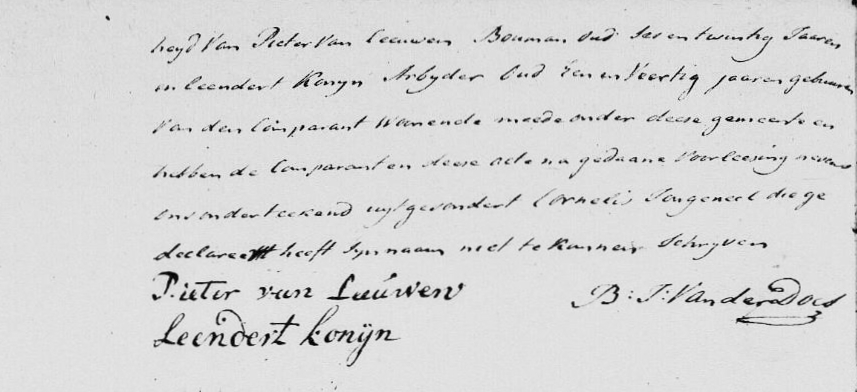 heyd Van Pieter Van Leeuwen Bouman oud Ses en twintig Jaaren
en Leendert Konyn Arbyder Oud Een en Veertig jaaren gebuuren
Van den Comparant Wonende meede onder deese gemeente en
hebben de Comparanten deese acte na gedaane Voorleesing nevens
ons onderteekend uytgesondert Cornelis Jongeneel die ge
declareert heeft Syn naam niet te Konnen Schryven
Pieter van Leeuwen
B: J: Van der Does
Leendert konijn